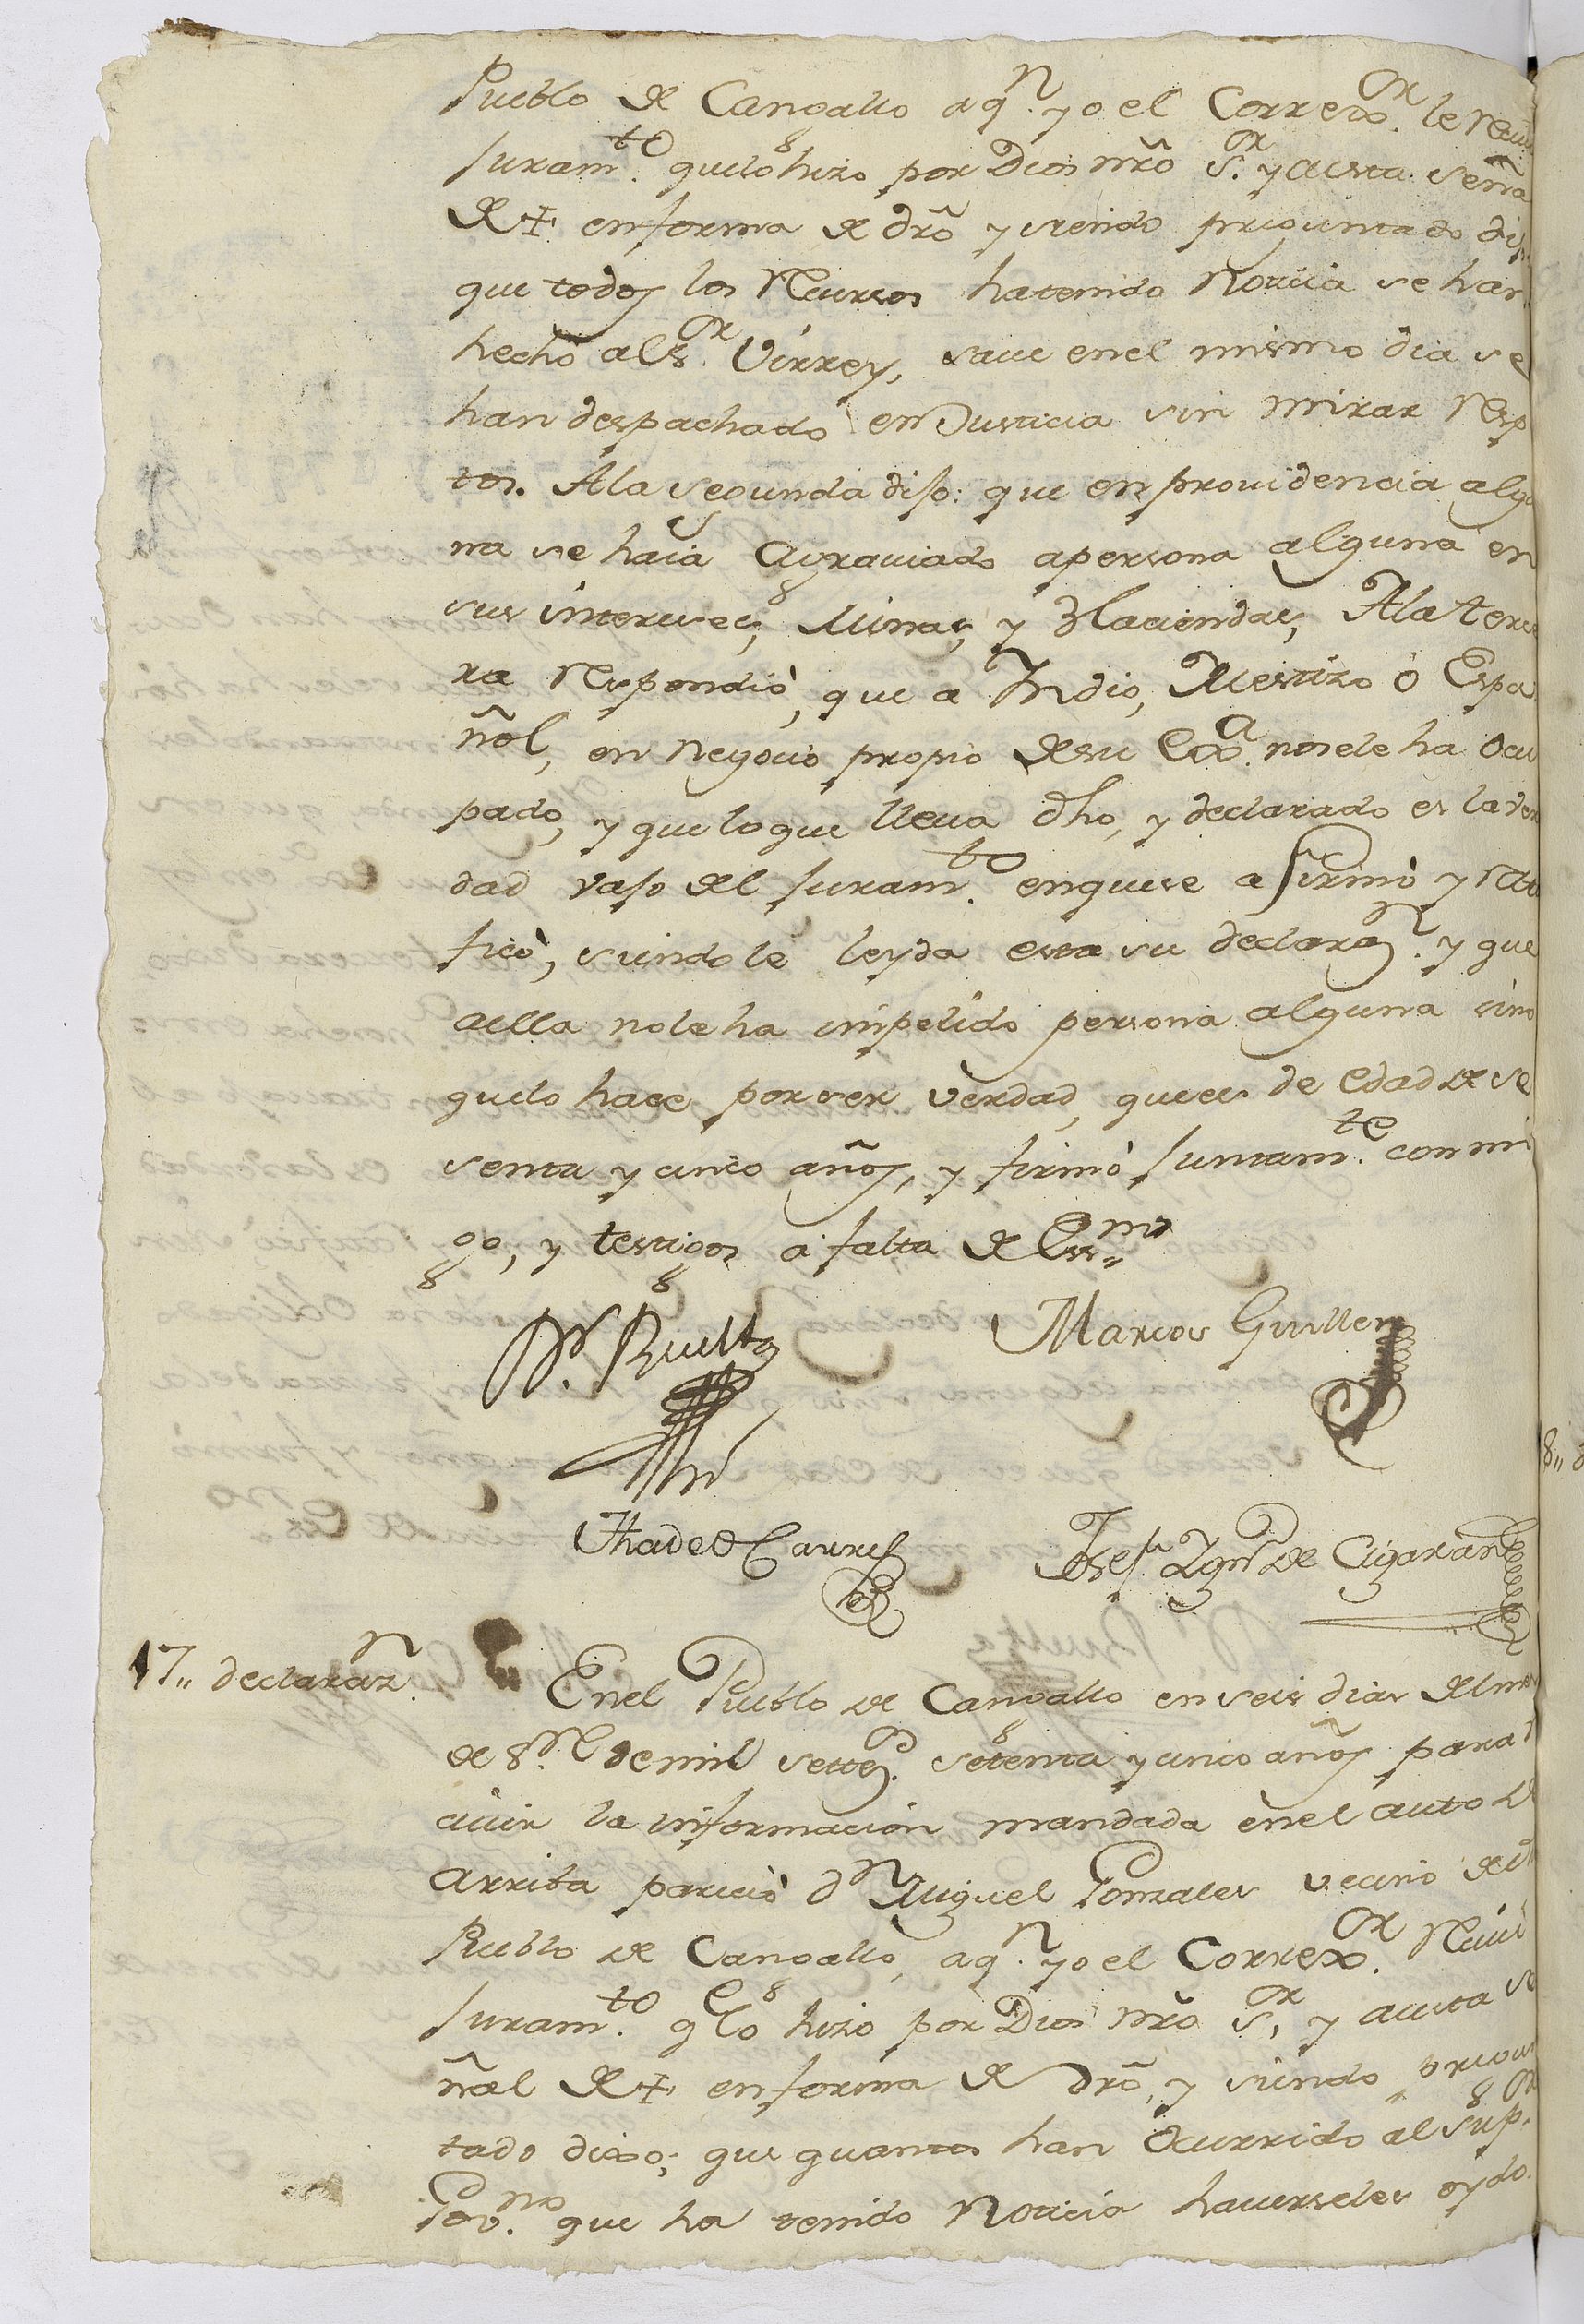 Pueblo de Cangallo aqn. yo el Correxor. le Reciui
Juramto. quelo hizo por Dios nrõ Sr. y aesta señal
de + enforma de drõ y siendo preguntado dijo
que todos los Recursos hatenido Noticia se han
hecho al Sr. Virrey, saue enel mismo dia se
han despachado en Justicia sin mirar Resp
tos. Ala segunda dijo: que en providencia algu
na se haia Agrauiado apersona alguna en
sus intereses, Minas, y Haciendas, Ala terce
ra Respondiò, que a Indio, Mestizo ò Espa
ñol, en Negocio propio desu Exa. nosele ha Ocu
pado, y que loque lleua dho, y declarado es la ver
dad vajo del Juramto. enquese afirmò y Rati
ficò, siendole leyda esta su declaran. y que
aella nole ha impelido persona alguna sino
quelo hace porser verdad, quees de edad de se
senta y cinco años, y firmò Juntamte. conmi
go, y testigos a falta de Essno
Dr. Ruelta
Marcos Guillen
Thadeo Carre
Josef Ygno de Cigaran
17,, declarazn.
Enel Pueblo de Cangallo en seis dias del mes
de 8re. de mil settes. setenta y cinco años para
ciuir la informacion mandada enel auto de
arriba pareciò dn Miguel Gonzales vecino del
Pueblo de Cangallo, aqn. yo el Correxor. Reciui
Juramto. qe lo hizo por Dios nrõ Sr, y aesta se
ñal de + enforma de drõ, y siendo pregun
tado dixo; que quantos han Ocurrido al Supor.
Govno. que ha tenido Noticia hauerseles oydo.